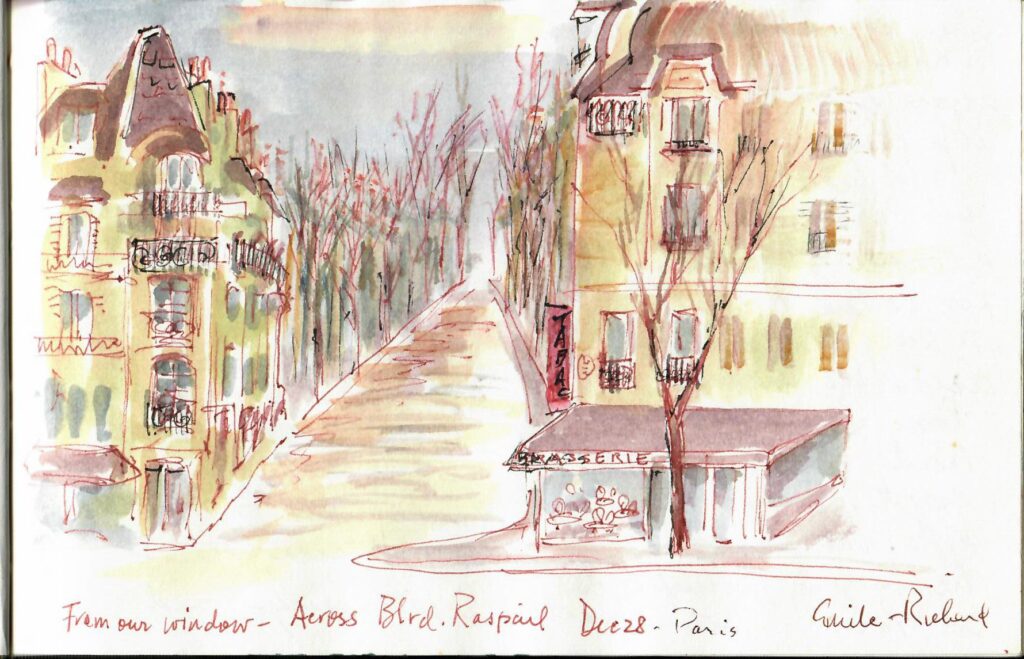 TABAC
BRASSERIE
From our window - Across Blvd. Raspail Dec 28 - Paris